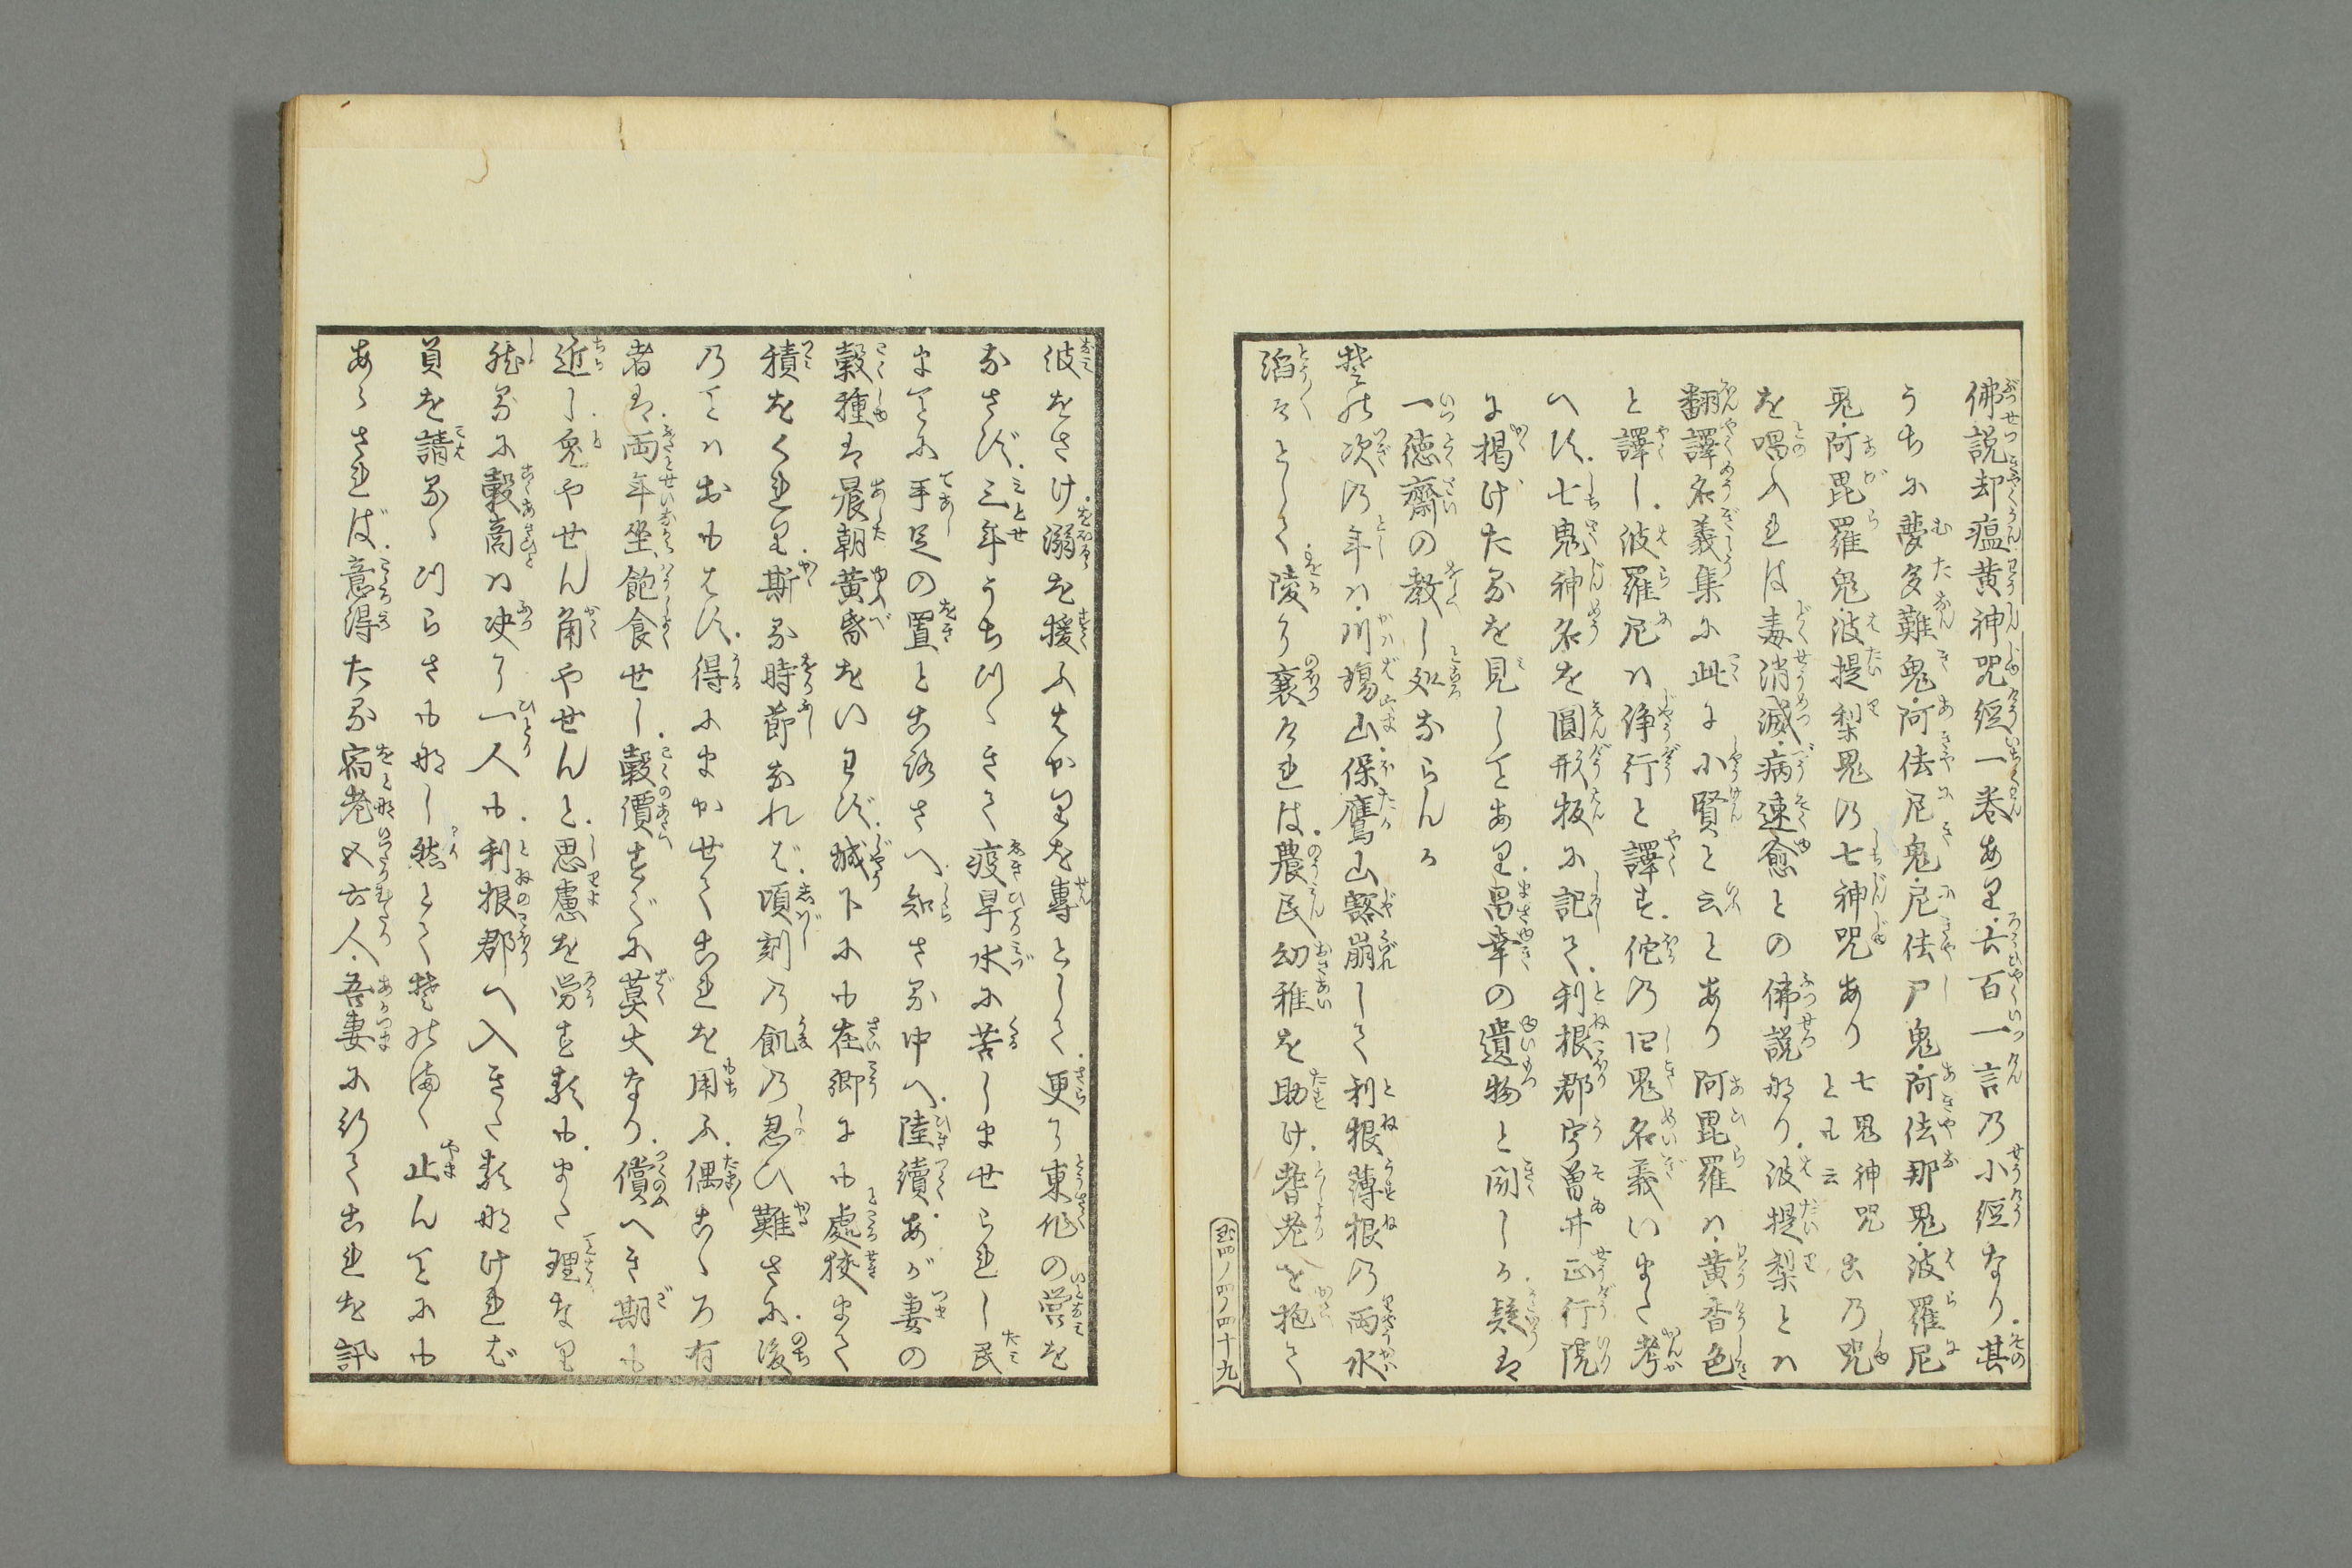 佛説却瘟黄神咒經一巻あり六百一言乃小經なり其
うちに夢多難鬼阿佉尼鬼尼佉尸鬼阿佉那鬼波羅尼
鬼阿毘羅鬼波提梨鬼乃七神咒あり七鬼神咒ともニ云出乃咒
を唱ふれは毒消滅病速愈との佛説なり波提梨とハ
翻譯名義集に此に小賢と云とあり阿毘羅ハ黄香色
と譯し波羅尼ハ浄行と譯す佗の四鬼名義いまた考
へす七鬼神名を圓形板に記て利根郡宇曽井正行院
に掲げたるを見してあり昌幸の遺物と聞しか疑は
一徳齋の教し処ならんか
楚れ次の年ハ川場山保鷹山谿崩して利根薄根の両水
滔々として陵に襄けれは農民幼稚を助け耆老を抱て
玉四ノ四ノ四十九
彼をさけ溺を援ふはかりを專として更に東作の営を
なさず三年うちつゝきて疫旱水に苦しませられし民
まてに手足の置ところさへ知さる中へ陸續あが妻の
穀種は晨朝黄昏をいはず城下にも在郷にも處狹まて
積をくれり斯る時節なれば頃刻の飢の忍ひ難さに後
のことハおもはす得にまかせてこれを用ふ偶こゝろ有
者は両年坐飽食せし穀價すでに莫大なり償へき期も
近し兎やせん角やせんと思慮を労す類もまた理なり
然るに穀商ハ決り一人も利根郡へ入きた類なけれど
員を請るゝつらさもなし然とて楚れ満く止んてにも
あらされば意得たる宿老五六人吾妻に行てこれを訊